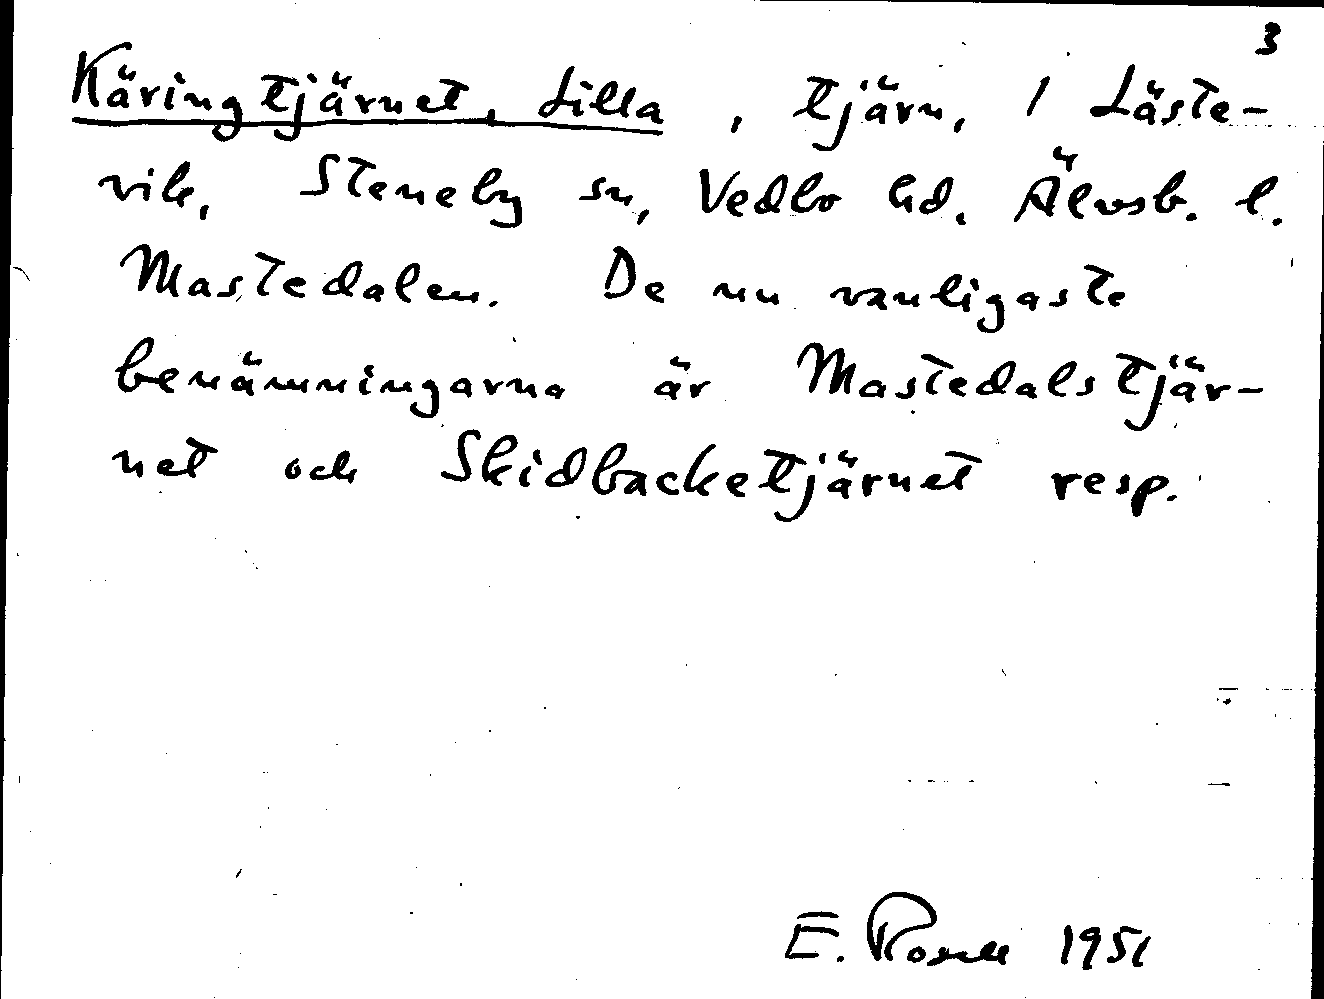 3
Käringtjärnet, Lilla, tjärn, 1 Läste-
vik, Steneby sn, Vedbo hd. Älvsb. l.
Mastedalen. De nu vanligaste
benämningarna är Mastedalstjär-
net och Skidbacketjärnet resp.
E. Rosell 1951